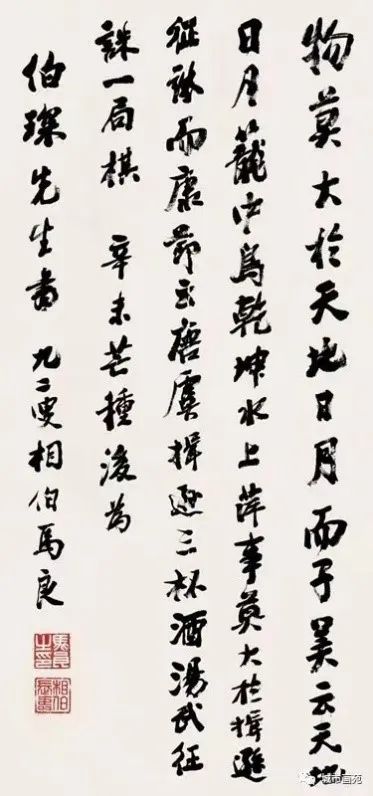 物莫大於天地日月而子美云天地
日月籠中鳥乾坤水上萍事莫大於揖遜
征誅而康節云唐虞揖遜三杯酒湯武征
誅一局棋 辛未芒種後為
伯琛先生書 九二叟相伯馬良
城市画苑